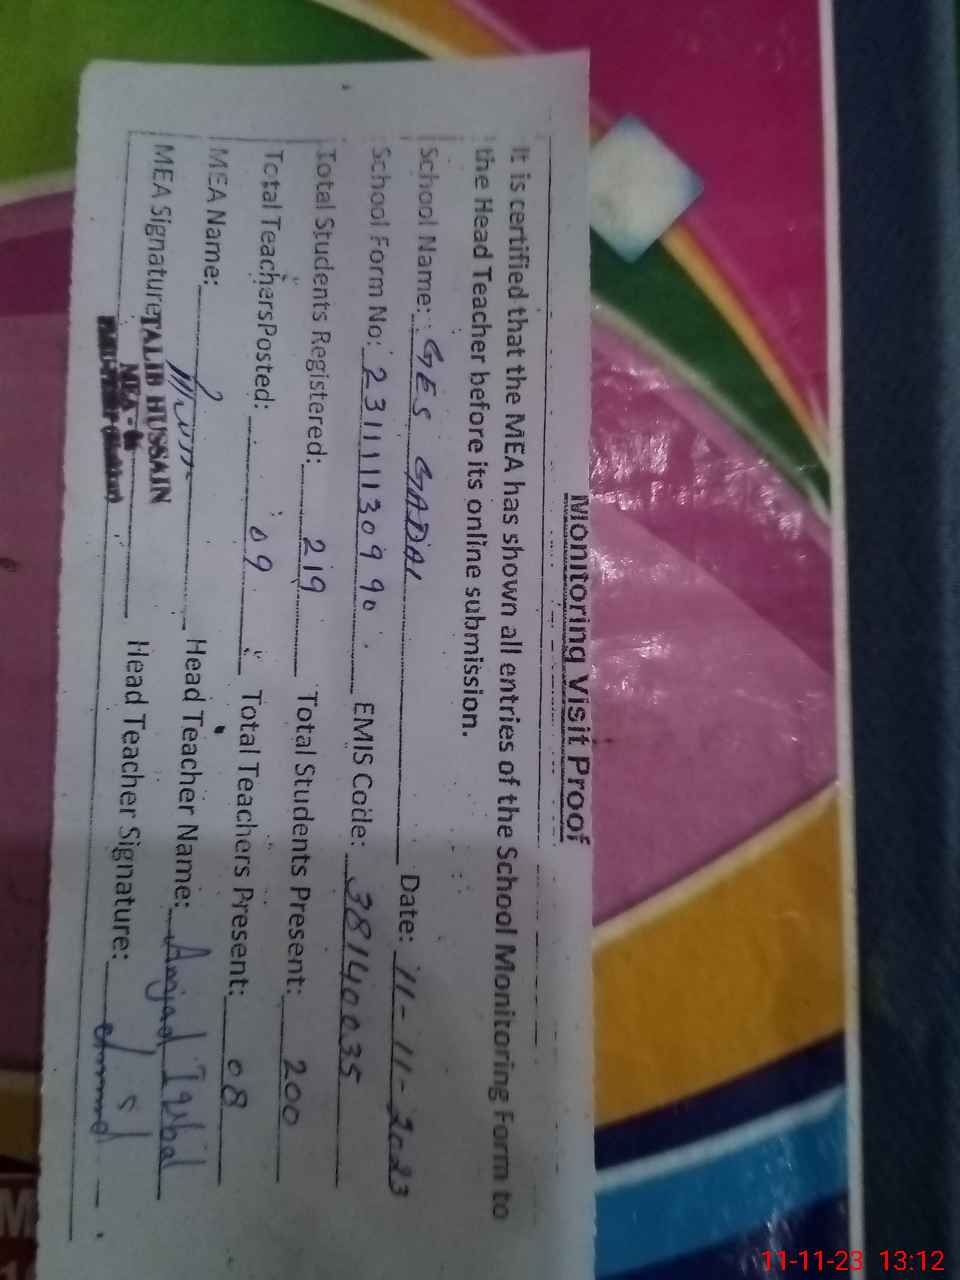 Monitoring Visit Proof
It is certified that the MEA has shown all entries of the School Monitoring Form to
the Head Teacher before its online submission.
School Name: GES GADAI Date: 11-11-2023
School Form No: 23111130990 EMIS Code: 38140035
Total Students Registered: 219 Total Students Present: 200
Total Teachers Posted: 09 Total Teachers Present: 08
MEA Name: Head Teacher Name: Amjad Iqbal
MEA Signature TALIB HUSSAIN Head Teacher Signature:
MEA-
11-11-23 13:12